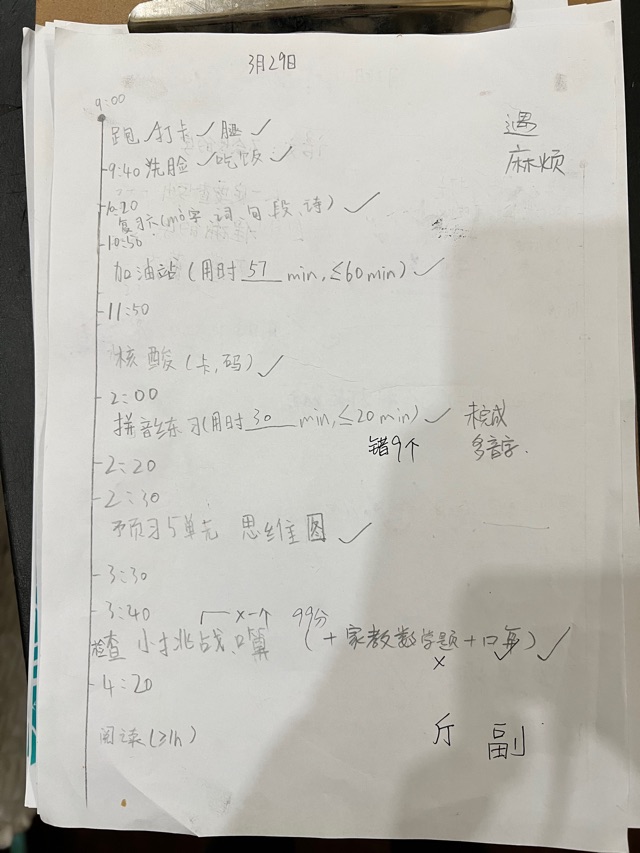 3月29日
9:00
跑 ✓打卡 ✓ 腿 ✓
遇
麻烦
9:40 洗脸 ✓吃饭 ✓
10:20
复习六(mò字、词、句、段、诗) ✓
10:50
加油站 (用时 57 min, ≤60min) ✓
11:50
核酸 (卡,码) ✓
2:00
拼音练习(用时 30 min, ≤20min) ✓ 未完成
错9个 多音字.
2:20
2:30
预习5单元 思维图 ✓
3:30
3:40 ×一个 99分
检查 小挑战,口算 (+家教数学题+口算) ✓
× ✓
4:20
阅读(≥1h)
斤 副